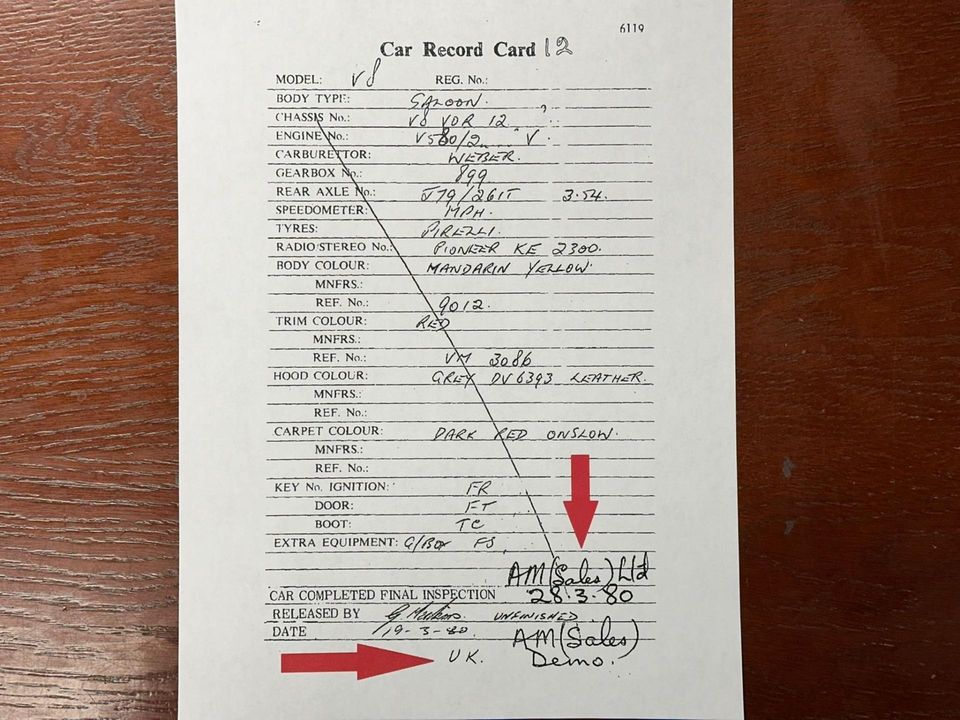 6119
Car Record Card 12
MODEL: V8 REG. No.:
BODY TYPE: SALOON.
CHASSIS No.: V8 VOR 12
ENGINE No.: V580/2 V.
CARBURETTOR: WEBER.
GEARBOX No.: 899
REAR AXLE No.: J79/261T 3.54.
SPEEDOMETER: MPH.
TYRES: PIRELLI.
RADIO/STEREO No.: PIONEER KE 2300.
BODY COLOUR: MANDARIN YELLOW.
MNFRS.:
REF. No.: 9012.
TRIM COLOUR: RED
MNFRS.:
REF. No.: VM 3086
HOOD COLOUR: GREY DV6393 LEATHER.
MNFRS.:
REF. No.:
CARPET COLOUR: DARK RED ONSLOW.
MNFRS.:
REF. No.:
KEY No. IGNITION: FR
DOOR: FT
BOOT: TC
EXTRA EQUIPMENT: G/BOX FS
AM (Sales) Ltd
CAR COMPLETED FINAL INSPECTION 28.3.80
RELEASED BY UNFINISHED
DATE 19-3-80 AM (Sales)
UK. Demo.